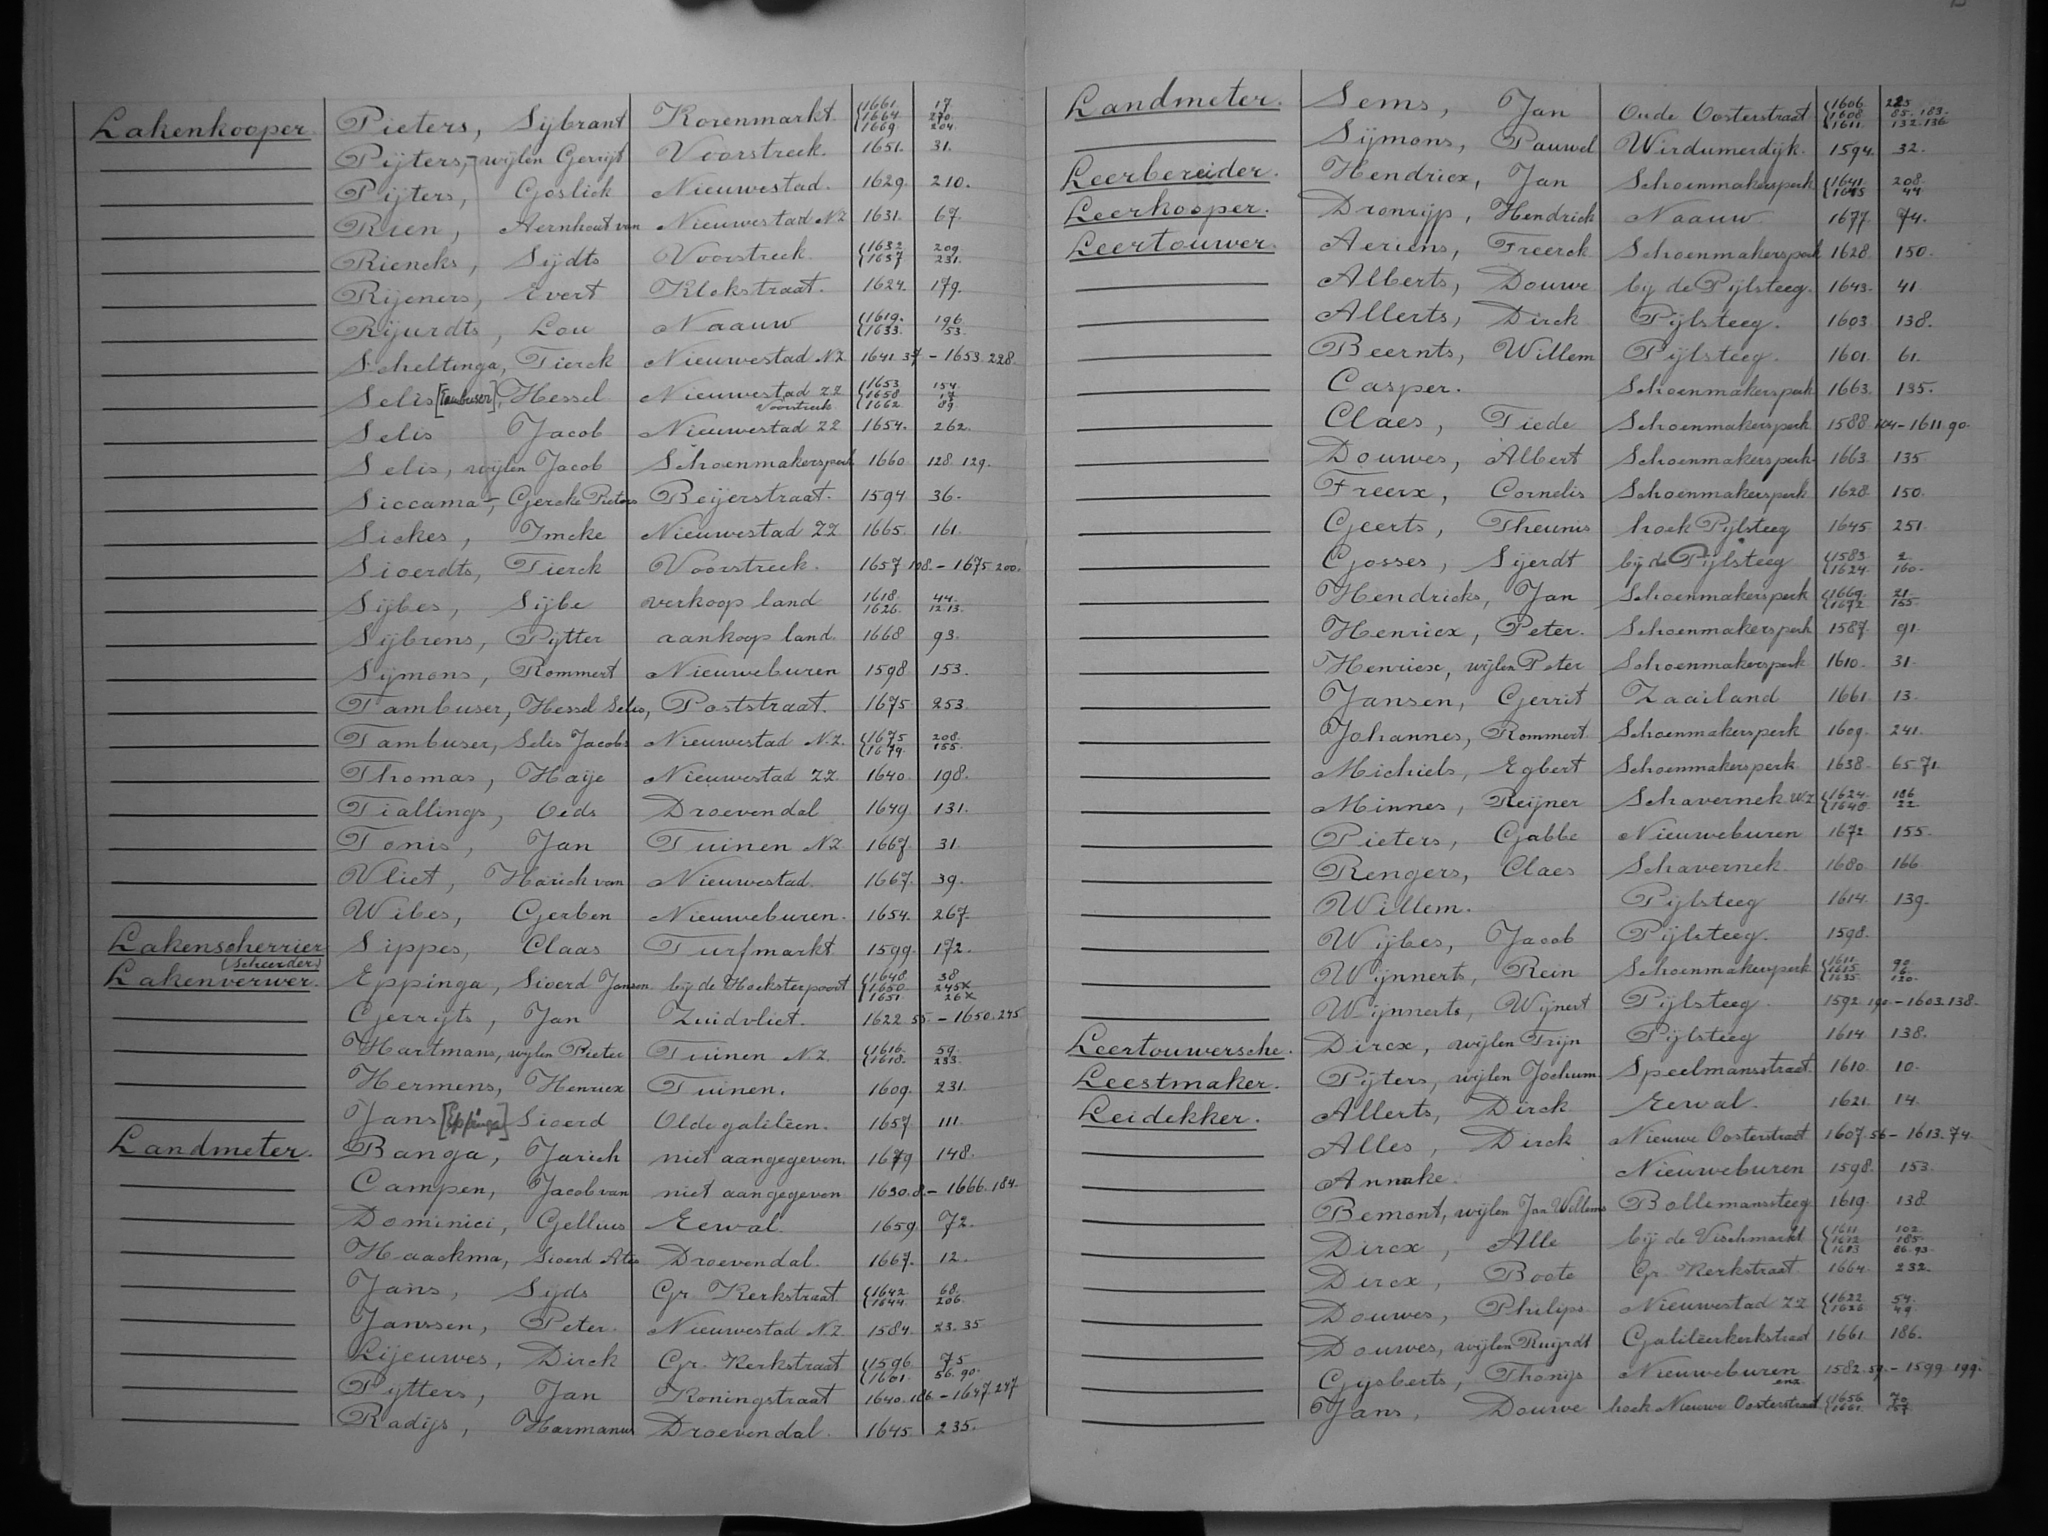 Lakenkooper. Pieters, Sijbrant Korenmarkt {1661. 17 {1664 270. {1669. 204.
Pijters, wijlen Gerrijt Voorstreek. 1651. 31.
Pijters, Goslick Nieuwestad. 1629. 210.
Rien, Aernhout van Nieuwestad N.Z 1631. 67.
Riencks, Sijdts Voorstreek. {1632 209. {1657 231.
Rijeners, Evert Klokstraat. 1624. 179.
Rijurdts, Lou Naauw {1619. 196 {1633. 53.
Scheltinga, Tierck Nieuwestad N.Z. 1641. 37 - 1653. 228.
Selis [Tambuser], Hessel Nieuwestad ZZ Voorstreek {1653 154. {1658 17 {1662 89.
Selis Jacob Nieuwestad ZZ 1654. 262.
Selis, wijlen Jacob Schoenmakersperk 1660 128. 129.
Siccama, Gercke Pieters Beijerstraat. 1594 36.
Sickes, Imcke Nieuwestad ZZ 1665. 161.
Sioerdts, Tierck Voorstreek. 1657 108. - 1675. 200.
Sijbes, Sijbe verkoop land 1618. 44. 1626. 12.13.
Sijbrens, Pijtter aankoop land. 1668 93.
Sijmons, Rommert Nieuweburen 1598 153.
Tambuser, Hessel Selis, Poststraat. 1675 253.
Tambuser, Selis Jacobs Nieuwestad N.Z. {1675 208. {1679. 155.
Thomas, Haije Nieuwestad ZZ. 1640. 198.
Tiallings, Oeds Droevendal 1649. 131.
Tonis, Jan Tuinen N.Z 1667. 31
Vliet, Harick van Nieuwestad. 1667. 39.
Wibes, Gerben Nieuweburen. 1654. 267.
Lakenscherrier (Scheerder) Sippes, Claas Turfmarkt 1599. 172.
Lakenverwer. Eppinga, Sioerd Jansen bij de Hoeksterpoort {1648. 38 {1650. 245x {1651 26x
Gerrijts, Jan Zuidvliet. 1622 55. - 1650. 245
Hartmans, wijlen Pieter Tuinen N.Z. {1616. 59. {1618. 233.
Hermens, Henricx Tuinen. 1609. 231.
Jans [Eppinga] Sioerd Olde galileen. 1657 111.
Landmeter. Banga, Jarich niet aangegeven. 1679 148.
Campen, Jacob van niet aangegeven 1630. 8. - 1666. 184.
Dominici, Gellius Eewal 1659 72.
Haackma, Sioerd Ates Droevendal. 1667. 12.
Jans, Sijds Gr. Kerkstraat {1642 68. {1644. 206.
Janssen, Peter. Nieuwestad N.Z. 1584. 23. 35
Lijeuwes, Dirck Gr. Kerkstraat {1596 75 {1601. 56. 90.
Pijtters, Jan Koningstraat 1640. 186 - 1647. 247
Radijs, Harmanus Droevendal. 1645. 235.
Landmeter. Sems, Jan Oude Oosterstraat {1606. 225 {1608 85. 183. {1611. 132. 136
Sijmons, Pauwel Wirdumerdijk. 1594. 32.
Leerbereider. Hendricx, Jan Schoenmakersperk {1641. 208. {1645 44
Leerkooper. Dronrijp, Hendrick Naauw 1677. 74.
Leertouwer. Aeriens, Freerck Schoenmakersperk 1628. 150.
Alberts, Douwe bij de Pijlsteeg. 1643. 41
Allerts, Dirck Pijlsteeg. 1603 138.
Beernts, Willem Pijlsteeg. 1601. 61.
Casper. Schoenmakersperk 1663. 135.
Claes, Tiede Schoenmakersperk 1588 124 - 1611. 90.
Douwes, Albert Schoenmakersperk 1663. 135
Freerx, Cornelis Schoenmakersperk 1628. 150.
Geerts, Theunis hoek Pijlsteeg 1645 251.
Gosses, Sijerdt bij de Pijlsteeg {1583. 2. {1624. 160.
Hendricks, Jan Schoenmakersperk {1669. 21. {1672 155.
Henricx, Peter. Schoenmakersperk 1587. 91.
Henricx, wijlen Peter Schoenmakersperk 1610. 31.
Jansen, Gerrit Zaailand 1661. 13.
Johannes, Rommert Schoenmakersperk 1609. 241.
Michiels, Egbert Schoenmakersperk 1638. 65 71.
Minnes, Reijner Schavernek W.Z {1624. 186 {1648. 22
Pieters, Gabbe Nieuweburen 1672. 155.
Rengers, Claes Schavernek. 1680. 166
Willem. Pijlsteeg 1614. 139.
Wijbes, Jacob Pijlsteeg. 1598.
Wijnnerts, Rein Schoenmakersperk {1611 90. {1615 {1635. 120.
Wijnnerts, Wijnert Pijlsteeg. 1592. 190. - 1603. 138.
Leertouwersche. Dircx, wijlen Trijn Pijlsteeg 1614 138.
Leestmaker. Pijters, wijlen Jochum. Speelmansstraat 1610. 10.
Leidekker. Allerts, Dirck Eewal. 1621. 14.
Alles, Dirck Nieuwe Oosterstraat 1607. 56 - 1613. 74.
Anneke. Nieuweburen 1598. 153.
Bemont, wijlen Jan Willems Bollemanssteeg 1619. 138.
Dircx, Alle bij de Vischmarkt {1611 102 {1612 185. {1613 86. 93.
Dircx, Boote Gr. Kerkstraat. 1664. 232.
Douwes, Philips Nieuwestad ZZ {1622 54. {1626 49.
Douwes, wijlen Ruijrdt Galileerkerkstraat 1661. 186.
Gijsberts, Thonijs Nieuweburen enz. 1582. 59. - 1599 199.
Jans, Douwe hoek Nieuwe Oosterstraat {1656 70 {1661. 67